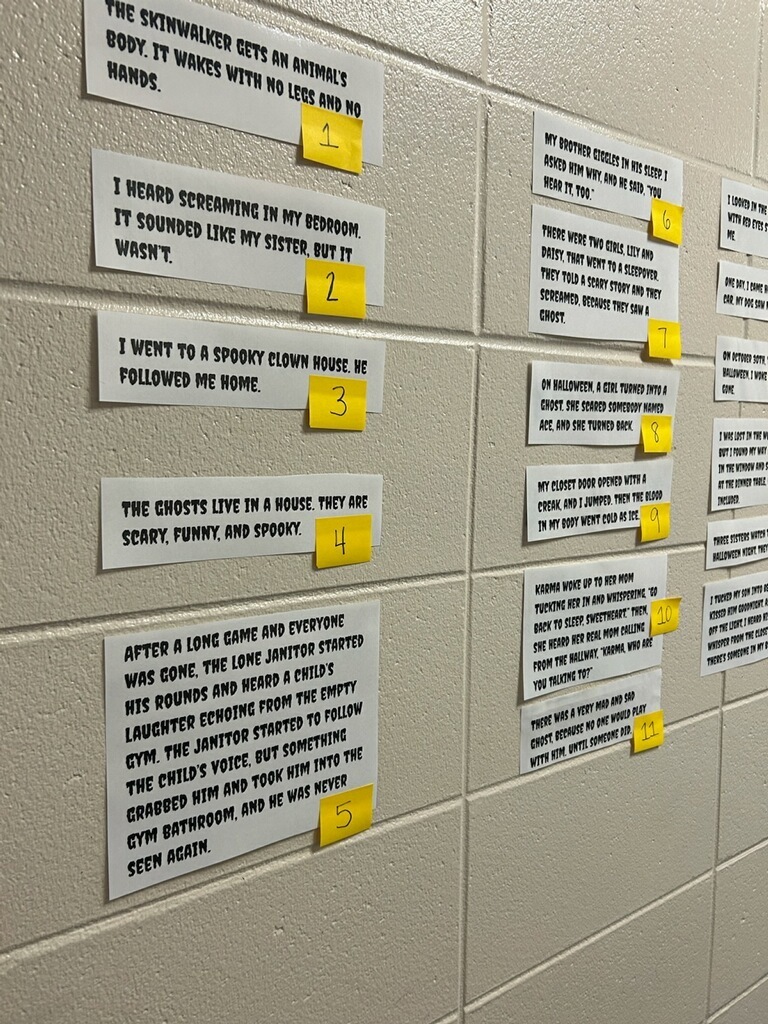 THE SKINWALKER GETS AN ANIMAL'S
BODY. IT WAKES WITH NO LEGS AND NO
HANDS.
1
I HEARD SCREAMING IN MY BEDROOM.
IT SOUNDED LIKE MY SISTER, BUT IT
WASN'T.
2
I WENT TO A SPOOKY CLOWN HOUSE. HE
FOLLOWED ME HOME.
3
THE GHOSTS LIVE IN A HOUSE. THEY ARE
SCARY, FUNNY, AND SPOOKY.
4
AFTER A LONG GAME AND EVERYONE
WAS GONE, THE LONE JANITOR STARTED
HIS ROUNDS AND HEARD A CHILD'S
LAUGHTER ECHOING FROM THE EMPTY
GYM. THE JANITOR STARTED TO FOLLOW
THE CHILD'S VOICE, BUT SOMETHING
GRABBED HIM AND TOOK HIM INTO THE
GYM BATHROOM, AND HE WAS NEVER
SEEN AGAIN.
5
MY BROTHER GIGGLES IN HIS SLEEP. I
ASKED HIM WHY, AND HE SAID, "YOU
HEAR IT, TOO."
6
THERE WERE TWO GIRLS, LILY AND
DAISY, THAT WENT TO A SLEEPOVER.
THEY TOLD A SCARY STORY AND THEY
SCREAMED, BECAUSE THEY SAW A
GHOST.
7
ON HALLOWEEN, A GIRL TURNED INTO A
GHOST. SHE SCARED SOMEBODY NAMED
ACE, AND SHE TURNED BACK.
8
MY CLOSET DOOR OPENED WITH A
CREAK, AND I JUMPED. THEN THE BLOOD
IN MY BODY WENT COLD AS ICE.
9
KARMA WOKE UP TO HER MOM
TUCKING HER IN AND WHISPERING, "GO
BACK TO SLEEP, SWEETHEART." THEN,
SHE HEARD HER REAL MOM CALLING
FROM THE HALLWAY, "KARMA, WHO ARE
YOU TALKING TO?"
10
THERE WAS A VERY MAD AND SAD
GHOST, BECAUSE NO ONE WOULD PLAY
WITH HIM. UNTIL SOMEONE DID.
11
I LOOKED IN THE
WITH RED EYES
ME.
ONE DAY, I CAME
CAR. MY DOG SAW
ON OCTOBER 30TH,
HALLOWEEN, I WOKE
GONE.
I WAS LOST IN THE
BUT I FOUND MY WAY
IN THE WINDOW AND
AT THE DINNER TABLE,
INCLUDED.
THREE SISTERS WATCH
HALLOWEEN NIGHT. THEY
I TUCKED MY SON INTO
KISSED HIM GOODNIGHT.
OFF THE LIGHT, I HEARD
WHISPER FROM THE
THERE'S SOMEONE IN MY